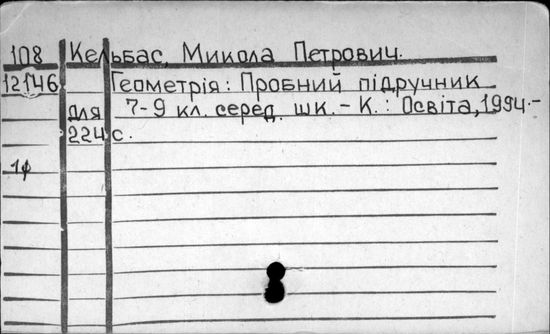 108 Кельбас, Микола Петрович.
12146 Геометрія: Пробний підручник
для 7-9 кл. серед. шк. - К.: Освіта, 1994.-
224 с.
1ф